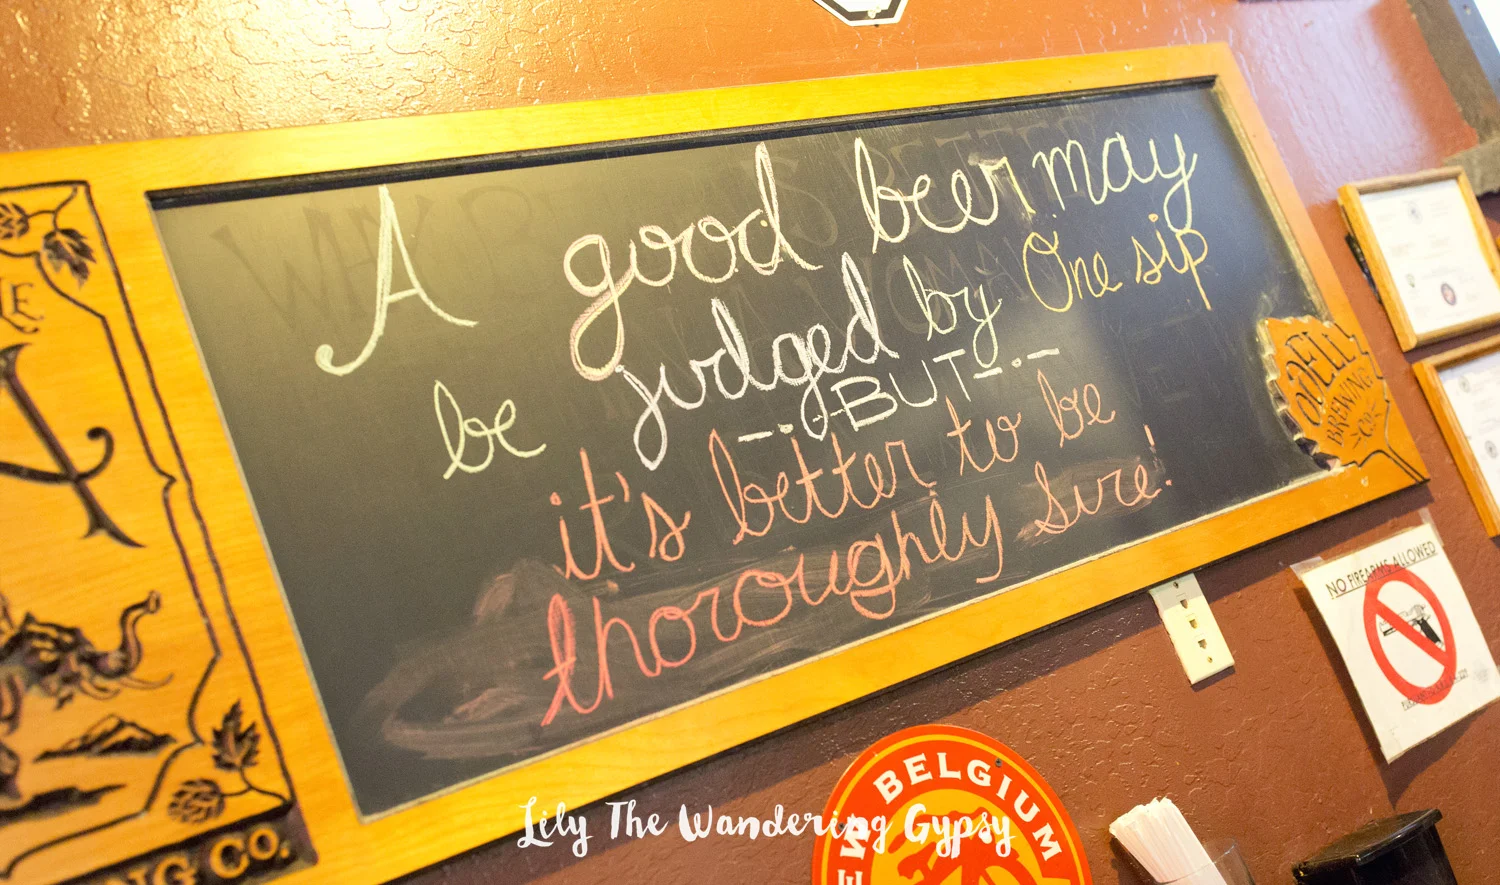 A good beer may
be judged by One sip
--·-BUT-·-
it's better to be
thoroughly sure!
ODELL
BREWING
CO.
NO FIREARMS ALLOWED
NG CO.
BELGIUM
Lily The Wandering Gypsy